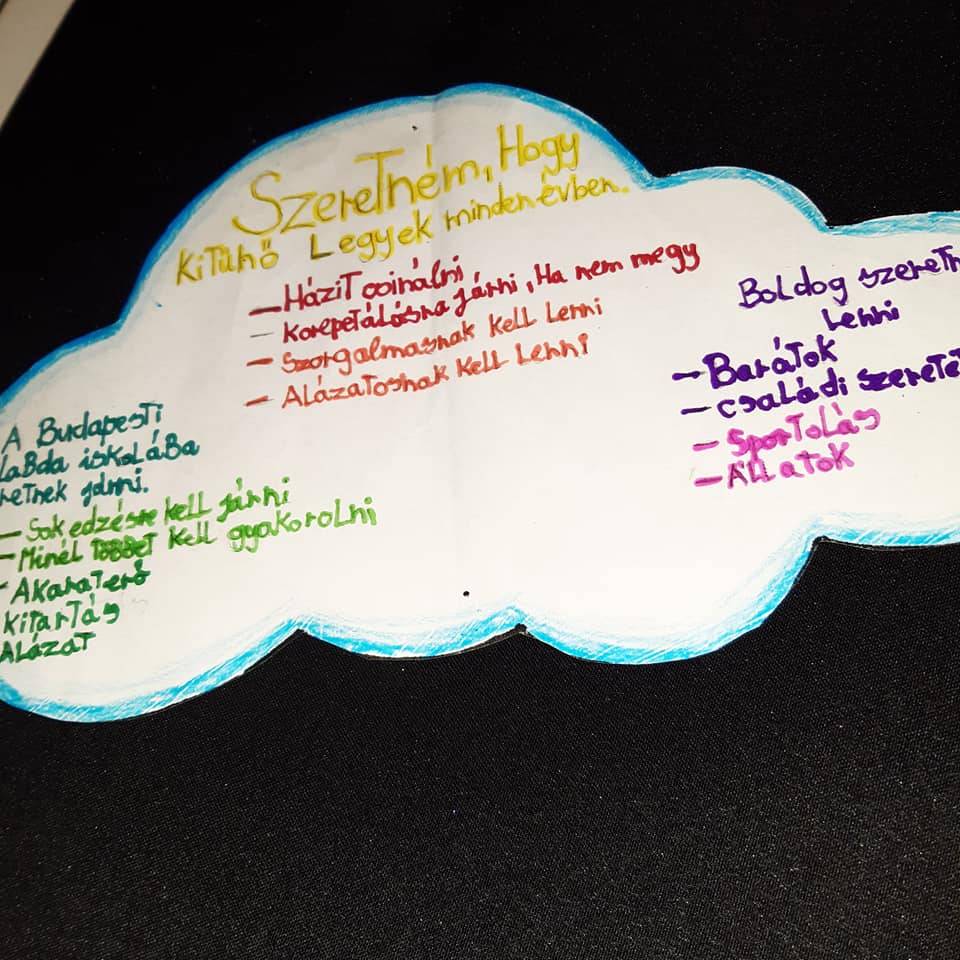 Szeretném, Hogy
Kitünő Legyek minden évben.
- Házit csinálni
- korepetálásra járni, Ha nem megy
- Szorgalmasnak kell Lenni
- ALázatosnak kell Lenni
Boldog szeretn
Lenni
- Barátok
- családi szeretet
- Sportolás
- ÁLLatok
A Budapesti
LaBda iskoLába
retnek járni.
- Sok edzésre kell járni
- Minél többet kell gyakorolni
- Akaraterő
kitartás
ALázat